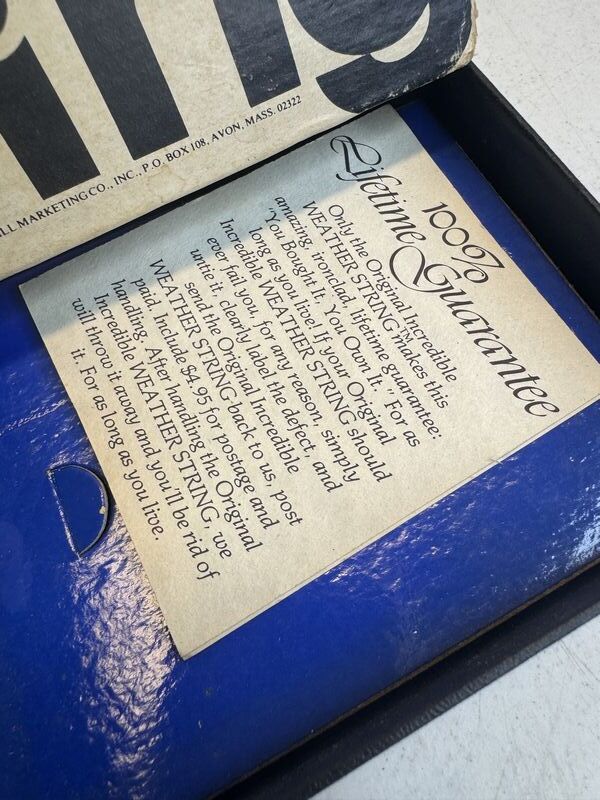 ring
LL MARKETING CO., INC., P.O. BOX 108, AVON, MASS. 02322
100%
Lifetime Guarantee
Only the Original Incredible
WEATHER STRING™ makes this
amazing, ironclad, lifetime guarantee:
"You Bought It. You Own It." For as
long as you live! If your Original
Incredible WEATHER STRING should
ever fail you, for any reason, simply
untie it, clearly label the defect, and
send the Original Incredible
WEATHER STRING back to us, post
paid. Include $4.95 for postage and
handling. After handling the Original
Incredible WEATHER STRING, we
will throw it away and you'll be rid of
it. For as long as you live.